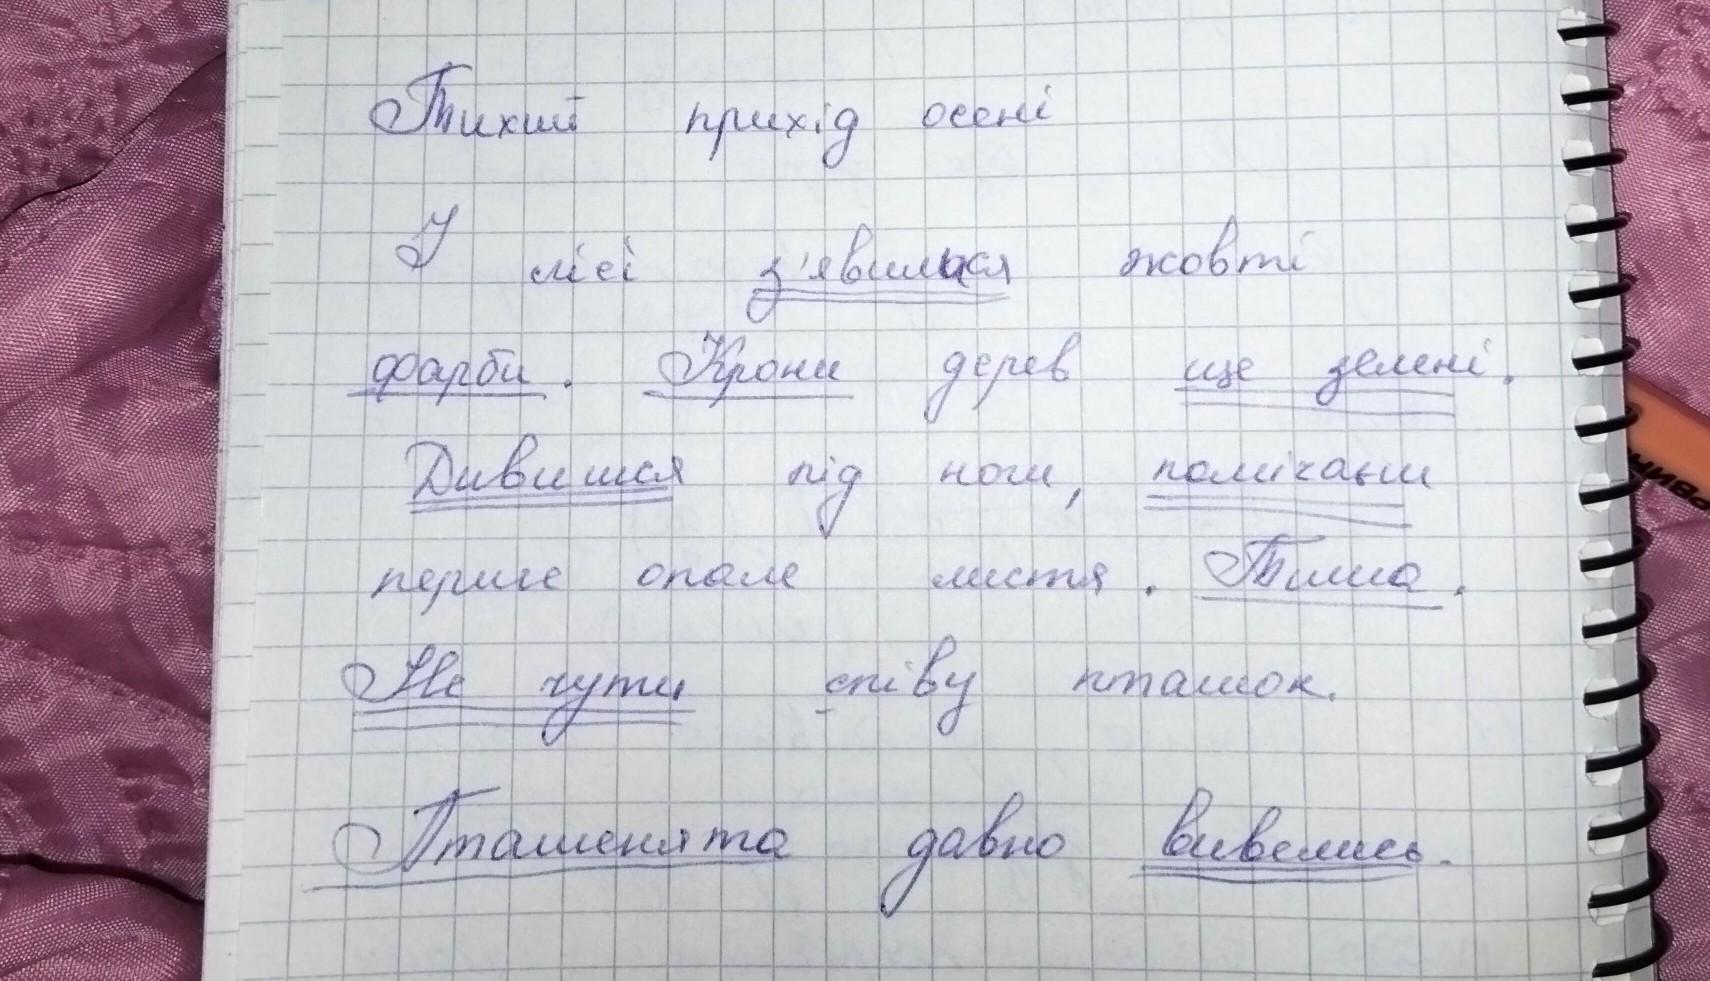 Тихий прихід осені
У лісі з'явилася жовті
фарби. Крони дерев ще зелені.
Дивишся під ноги, помічаєш
перше опале листя. Тиша.
Не чути співу пташок.
Пташенята давно вивелись.